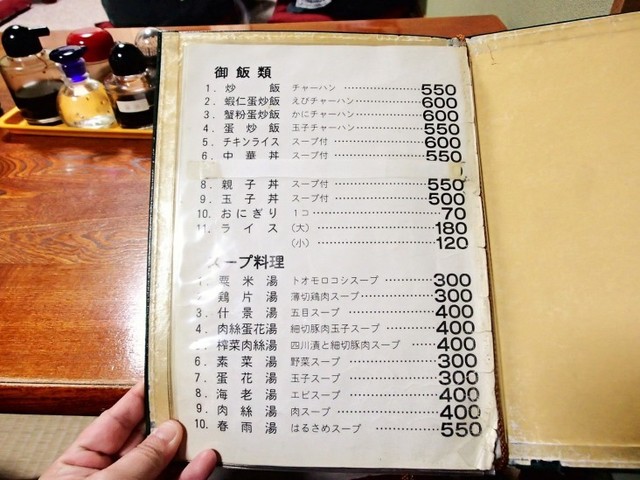 御飯類
1. 炒飯 チャーハン 550
2. 蝦仁蛋炒飯 えびチャーハン 600
3. 蟹粉蛋炒飯 かにチャーハン 600
4. 蛋炒飯 玉子チャーハン 550
5. チキンライス スープ付 600
6. 中華丼 スープ付 550
8. 親子丼 スープ付 550
9. 玉子丼 スープ付 500
10. おにぎり 1コ 70
11. ライス (大) 180
(小) 120
スープ料理
1. 粟米湯 トオモロコシスープ 300
2. 鶏片湯 薄切鶏肉スープ 300
3. 什景湯 五目スープ 400
4. 肉絲蛋花湯 細切豚肉玉子スープ 400
5. 榨菜肉絲湯 四川漬と細切豚肉スープ 400
6. 素菜湯 野菜スープ 300
7. 蛋花湯 玉子スープ 300
8. 海老湯 エビスープ 400
9. 肉絲湯 肉スープ 400
10. 春雨湯 はるさめスープ 550